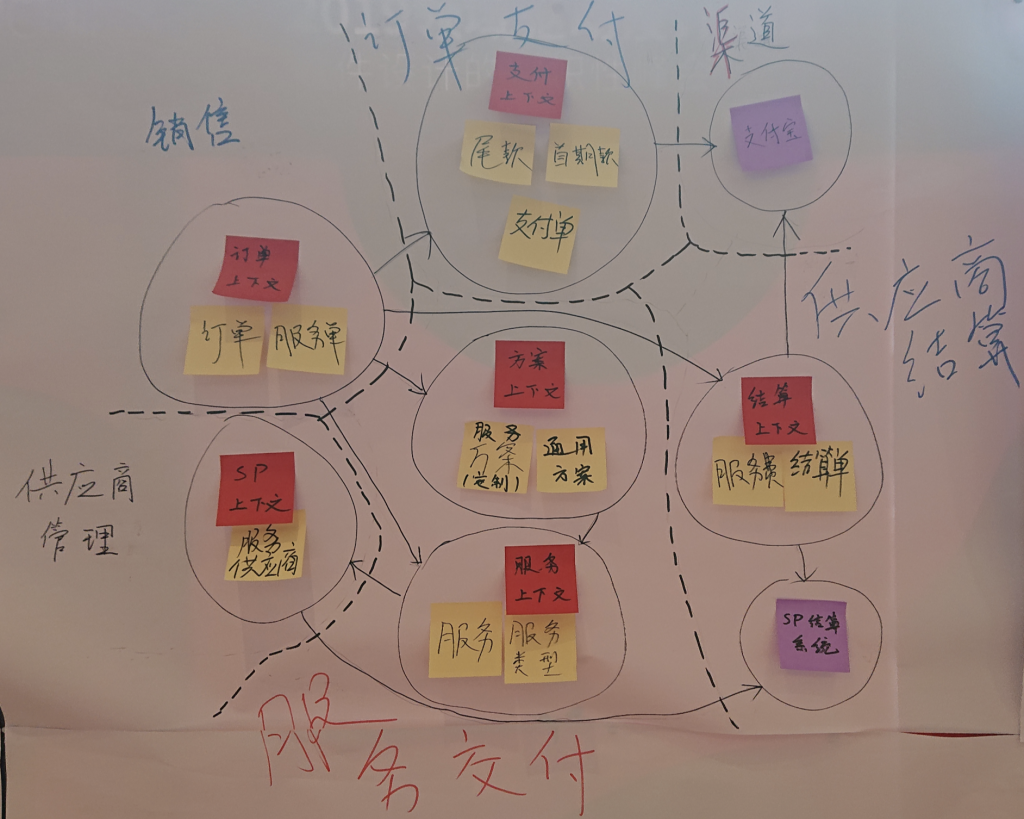 订单支付
渠道
销售
支付
上下文
尾款
首期款
支付单
支付宝
订单
上下文
订单
服务单
供应商
结算
方案
上下文
服务
方案
(定制)
通用
方案
结算
上下文
服务费
结算单
供应商
管理
SP
上下文
服务
供应商
服务
上下文
服务
服务
类型
SP结算
系统
服务交付